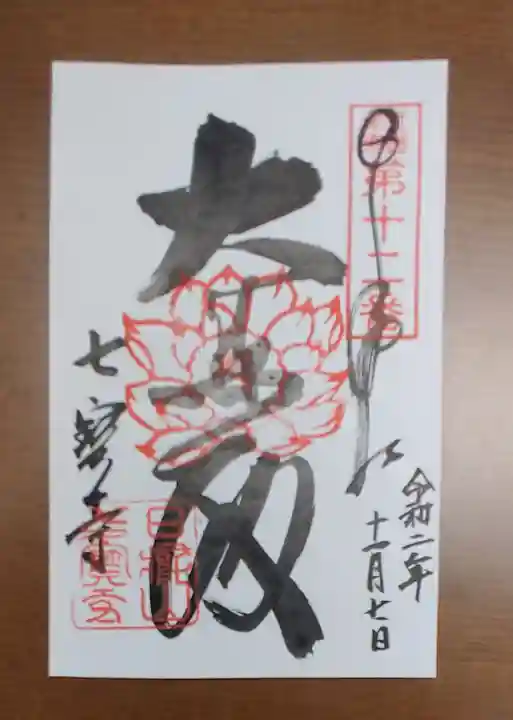 第十二番
奉拝
令和二年
十一月七日
大悲殿
七寶寺